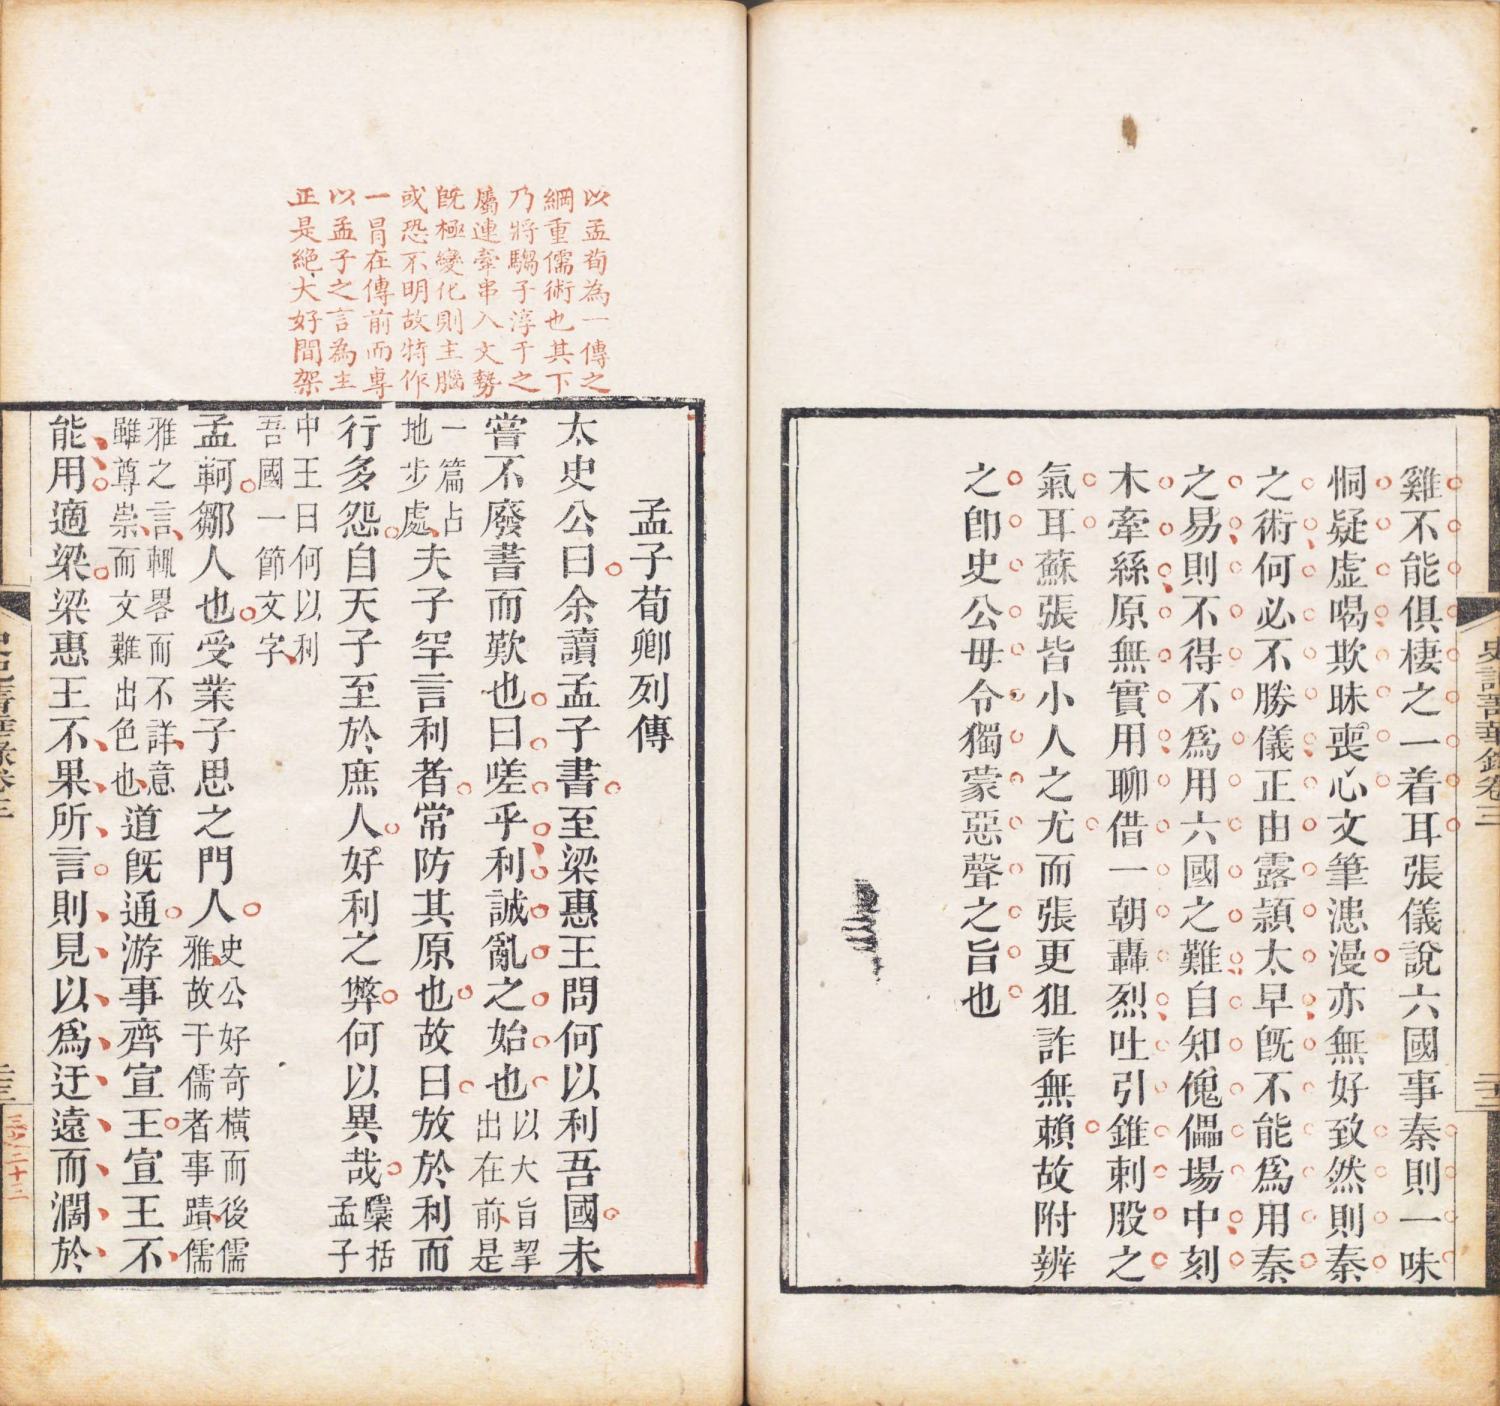 雞不能俱棲之一着耳張儀說六國事秦則一味
恫疑虛喝欺昧喪心文筆漶漫亦無好致然則秦
之術何必不勝儀正由露潁太早旣不能爲用秦
之易則不得不爲用六國之難自知傀儡場中刻
木牽絲原無實用聊借一朝轟烈吐引錐刺股之
氣耳蘇張皆小人之尤而張更狙詐無賴故附辨
之卽史公毋令獨蒙惡聲之旨也
史記菁華錄卷三
二十二
以孟荀為一傳之
綱重儒術也其下
乃將騶子淳于之
屬連牽串入文勢
旣極變化則主腦
或恐不明故特作
一冒在傳前而專
以孟子之言為主
正是絕大好間架
孟子荀卿列傳
太史公曰余讀孟子書至梁惠王問何以利吾國未
嘗不廢書而歎也曰嗟乎利誠亂之始也以大旨挈出在前是
一篇占地步處夫子罕言利者常防其原也故曰放於利而
行多怨自天子至於庶人好利之弊何以異哉櫽括孟子
中王曰何以利吾國一節文字
孟軻鄒人也受業子思之門人史公好奇橫而後儒雅故于儒者事蹟儒
雅之言輒畧而不詳意雖尊崇而文難出色也道旣通游事齊宣王宣王不
能用適梁梁惠王不果所言則見以爲迂遠而濶於
史記菁華錄卷三
二十三